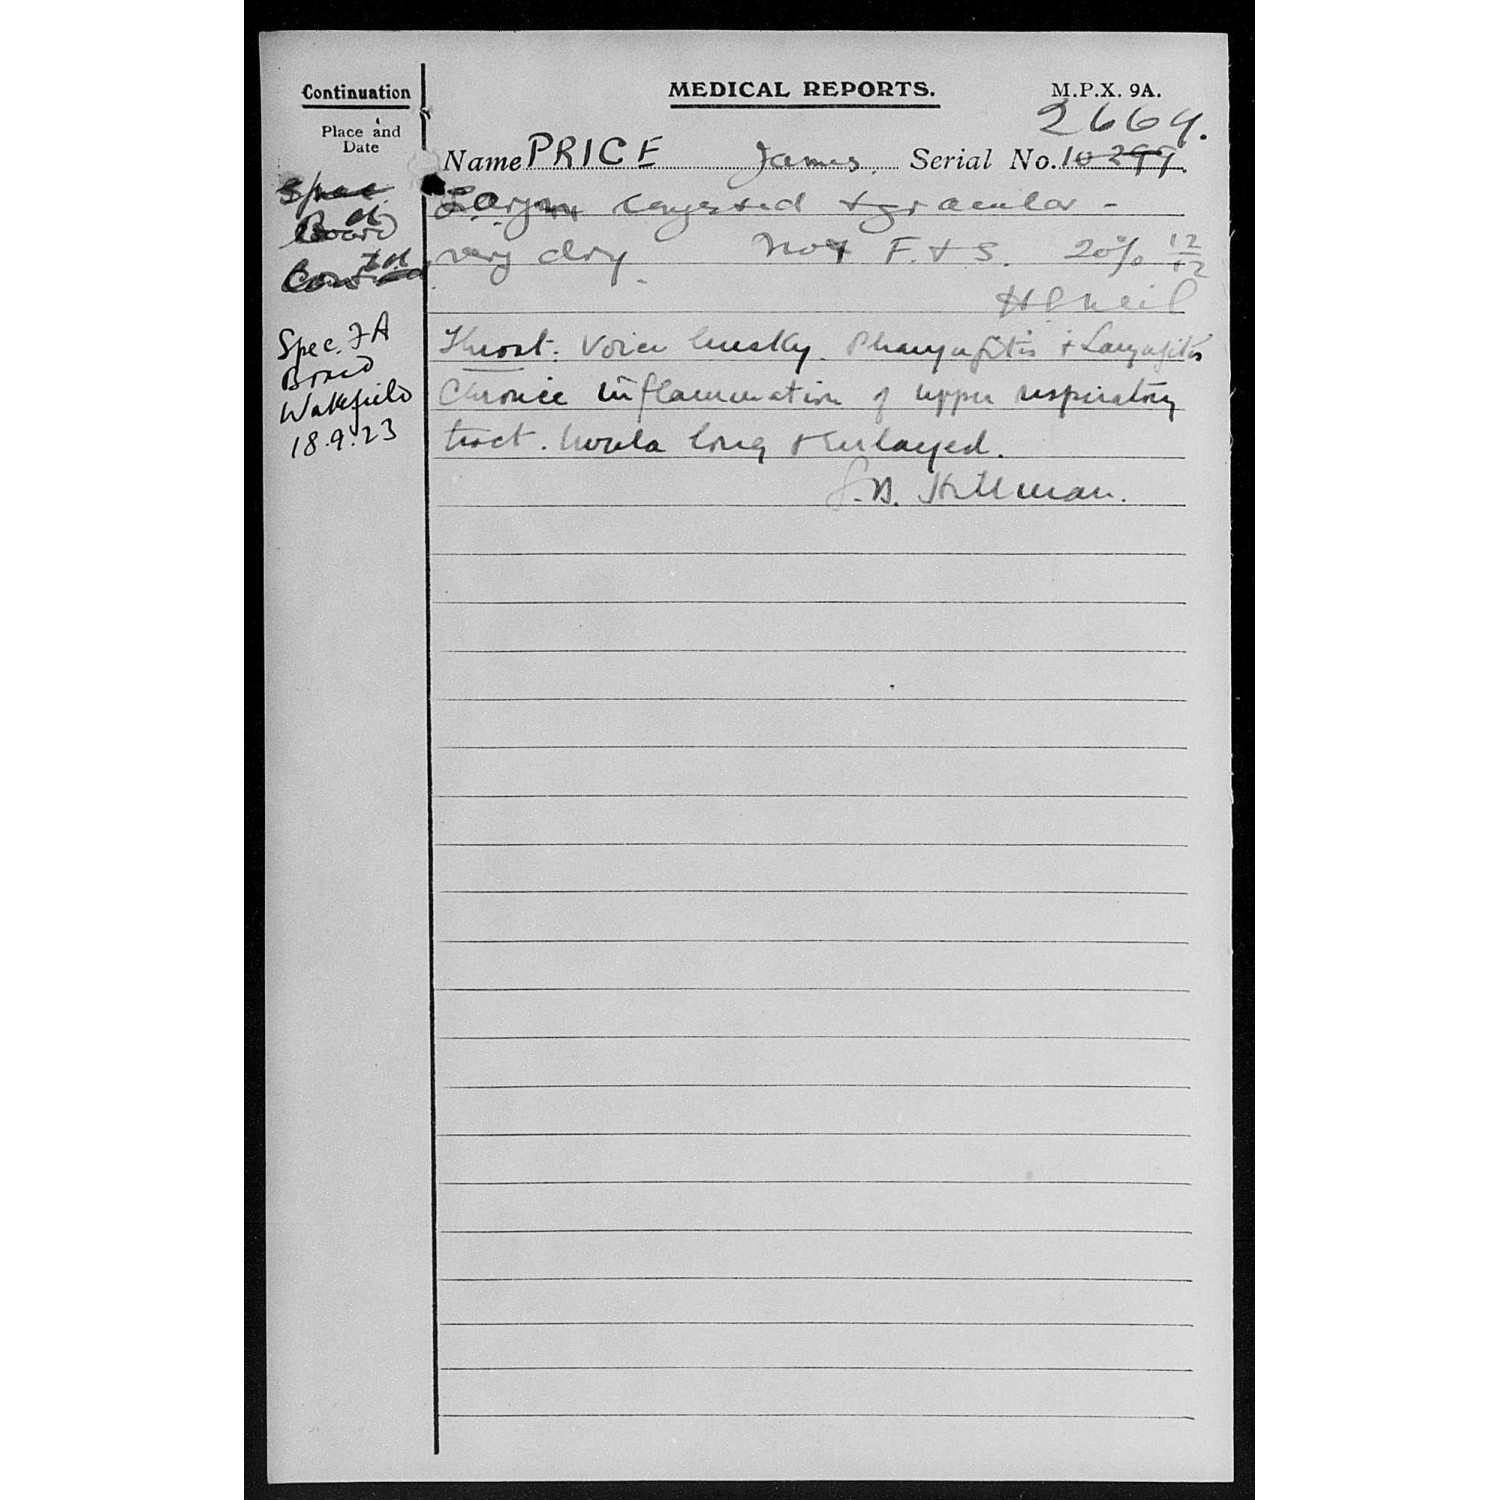 Continuation
MEDICAL REPORTS.
M.P.X. 9A.
Place and
Date
2669.
Name PRICE James. Serial No. 10299.
Larynx congested & granular -
Board
very dry. Not F. & S. 20% 12/12
H O'Neil
Spec. FA
Board
Wakefield
18.9.23
Throat: Voice husky. Pharyngitis & Laryngitis
Chronic inflammation of upper respiratory
tract. Uvula long & enlarged.
Hillman.